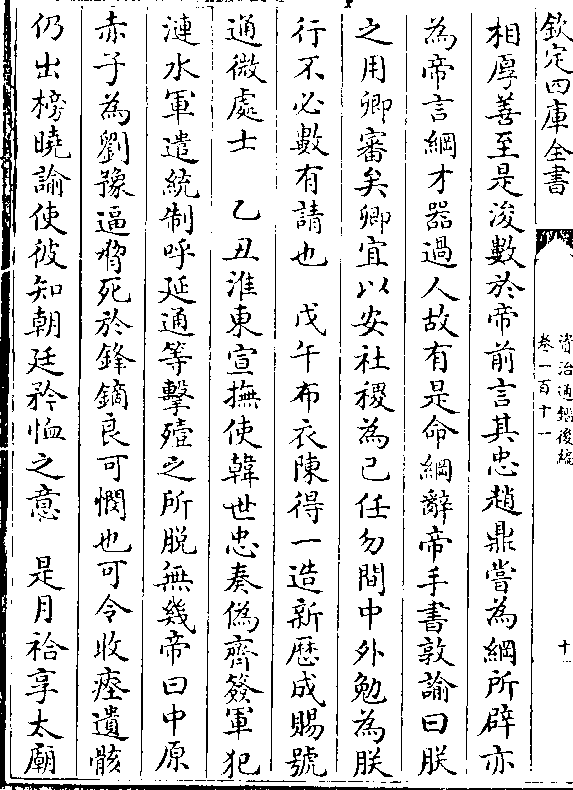 欽定四庫全書
資治通鑑後編
卷一百十一
十一
相厚善至是浚數於帝前言其忠趙鼎嘗為綱所辟亦
為帝言綱才器過人故有是命綱辭帝手書敦諭曰朕
之用卿審矣卿宜以安社稷為己任勿間中外勉為朕
行不必數有請也　戊午布衣陳得一造新歷成賜號
通微處士　乙丑淮東宣撫使韓世忠奏偽齊簽軍犯
漣水軍遣統制呼延通等擊殪之所脫無幾帝曰中原
赤子為劉豫逼脅死於鋒鏑良可憫也可令收瘞遺骸
仍出榜曉諭使彼知朝廷矜恤之意　是月祫享太廟